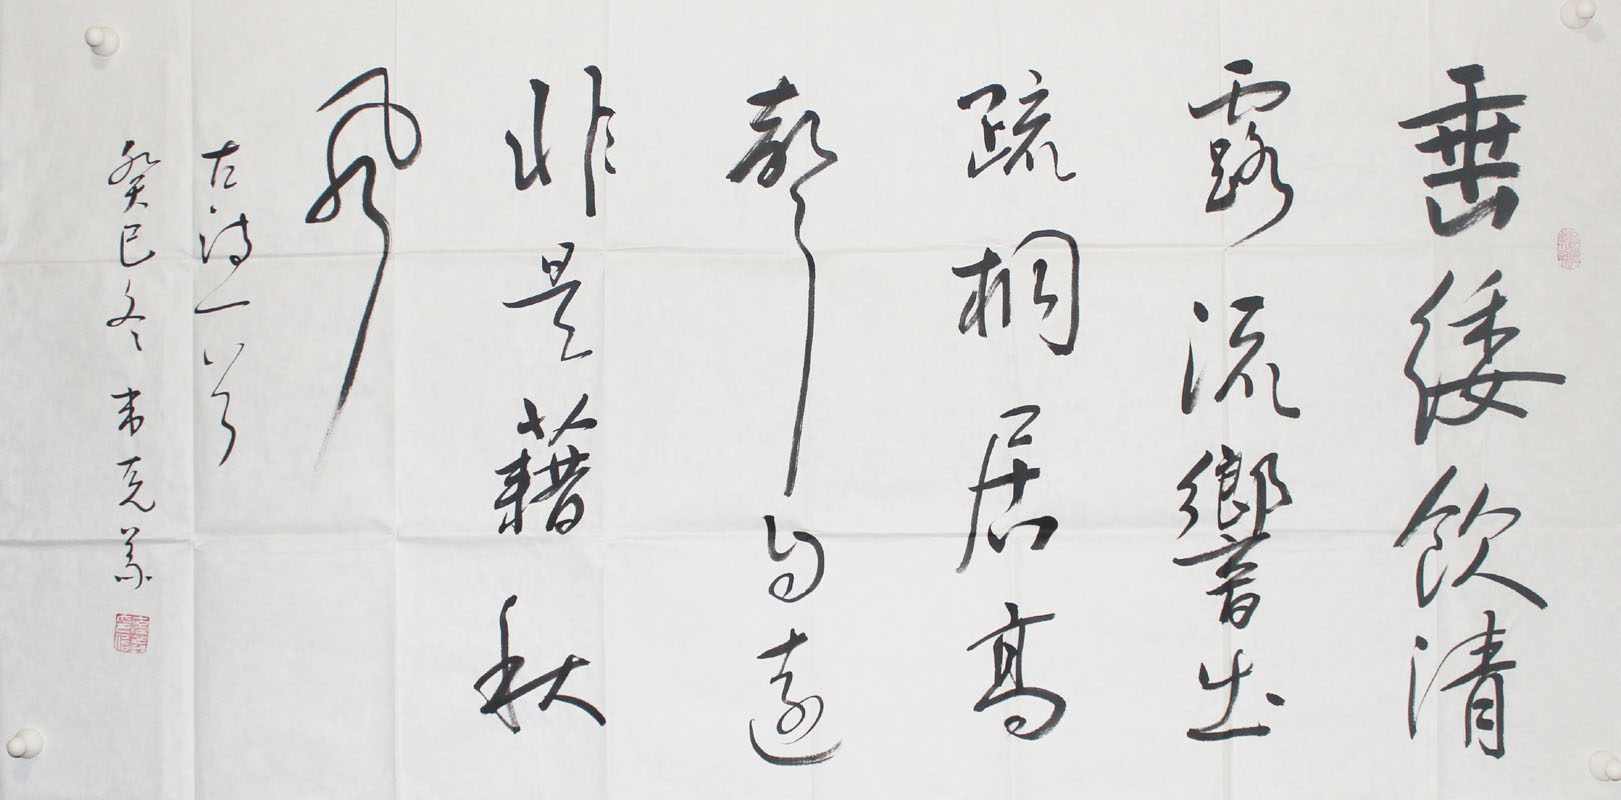 垂緌飲清
露流響出
疏桐居高
聲自遠
非是藉秋
風
古詩一首
癸巳冬韦克义